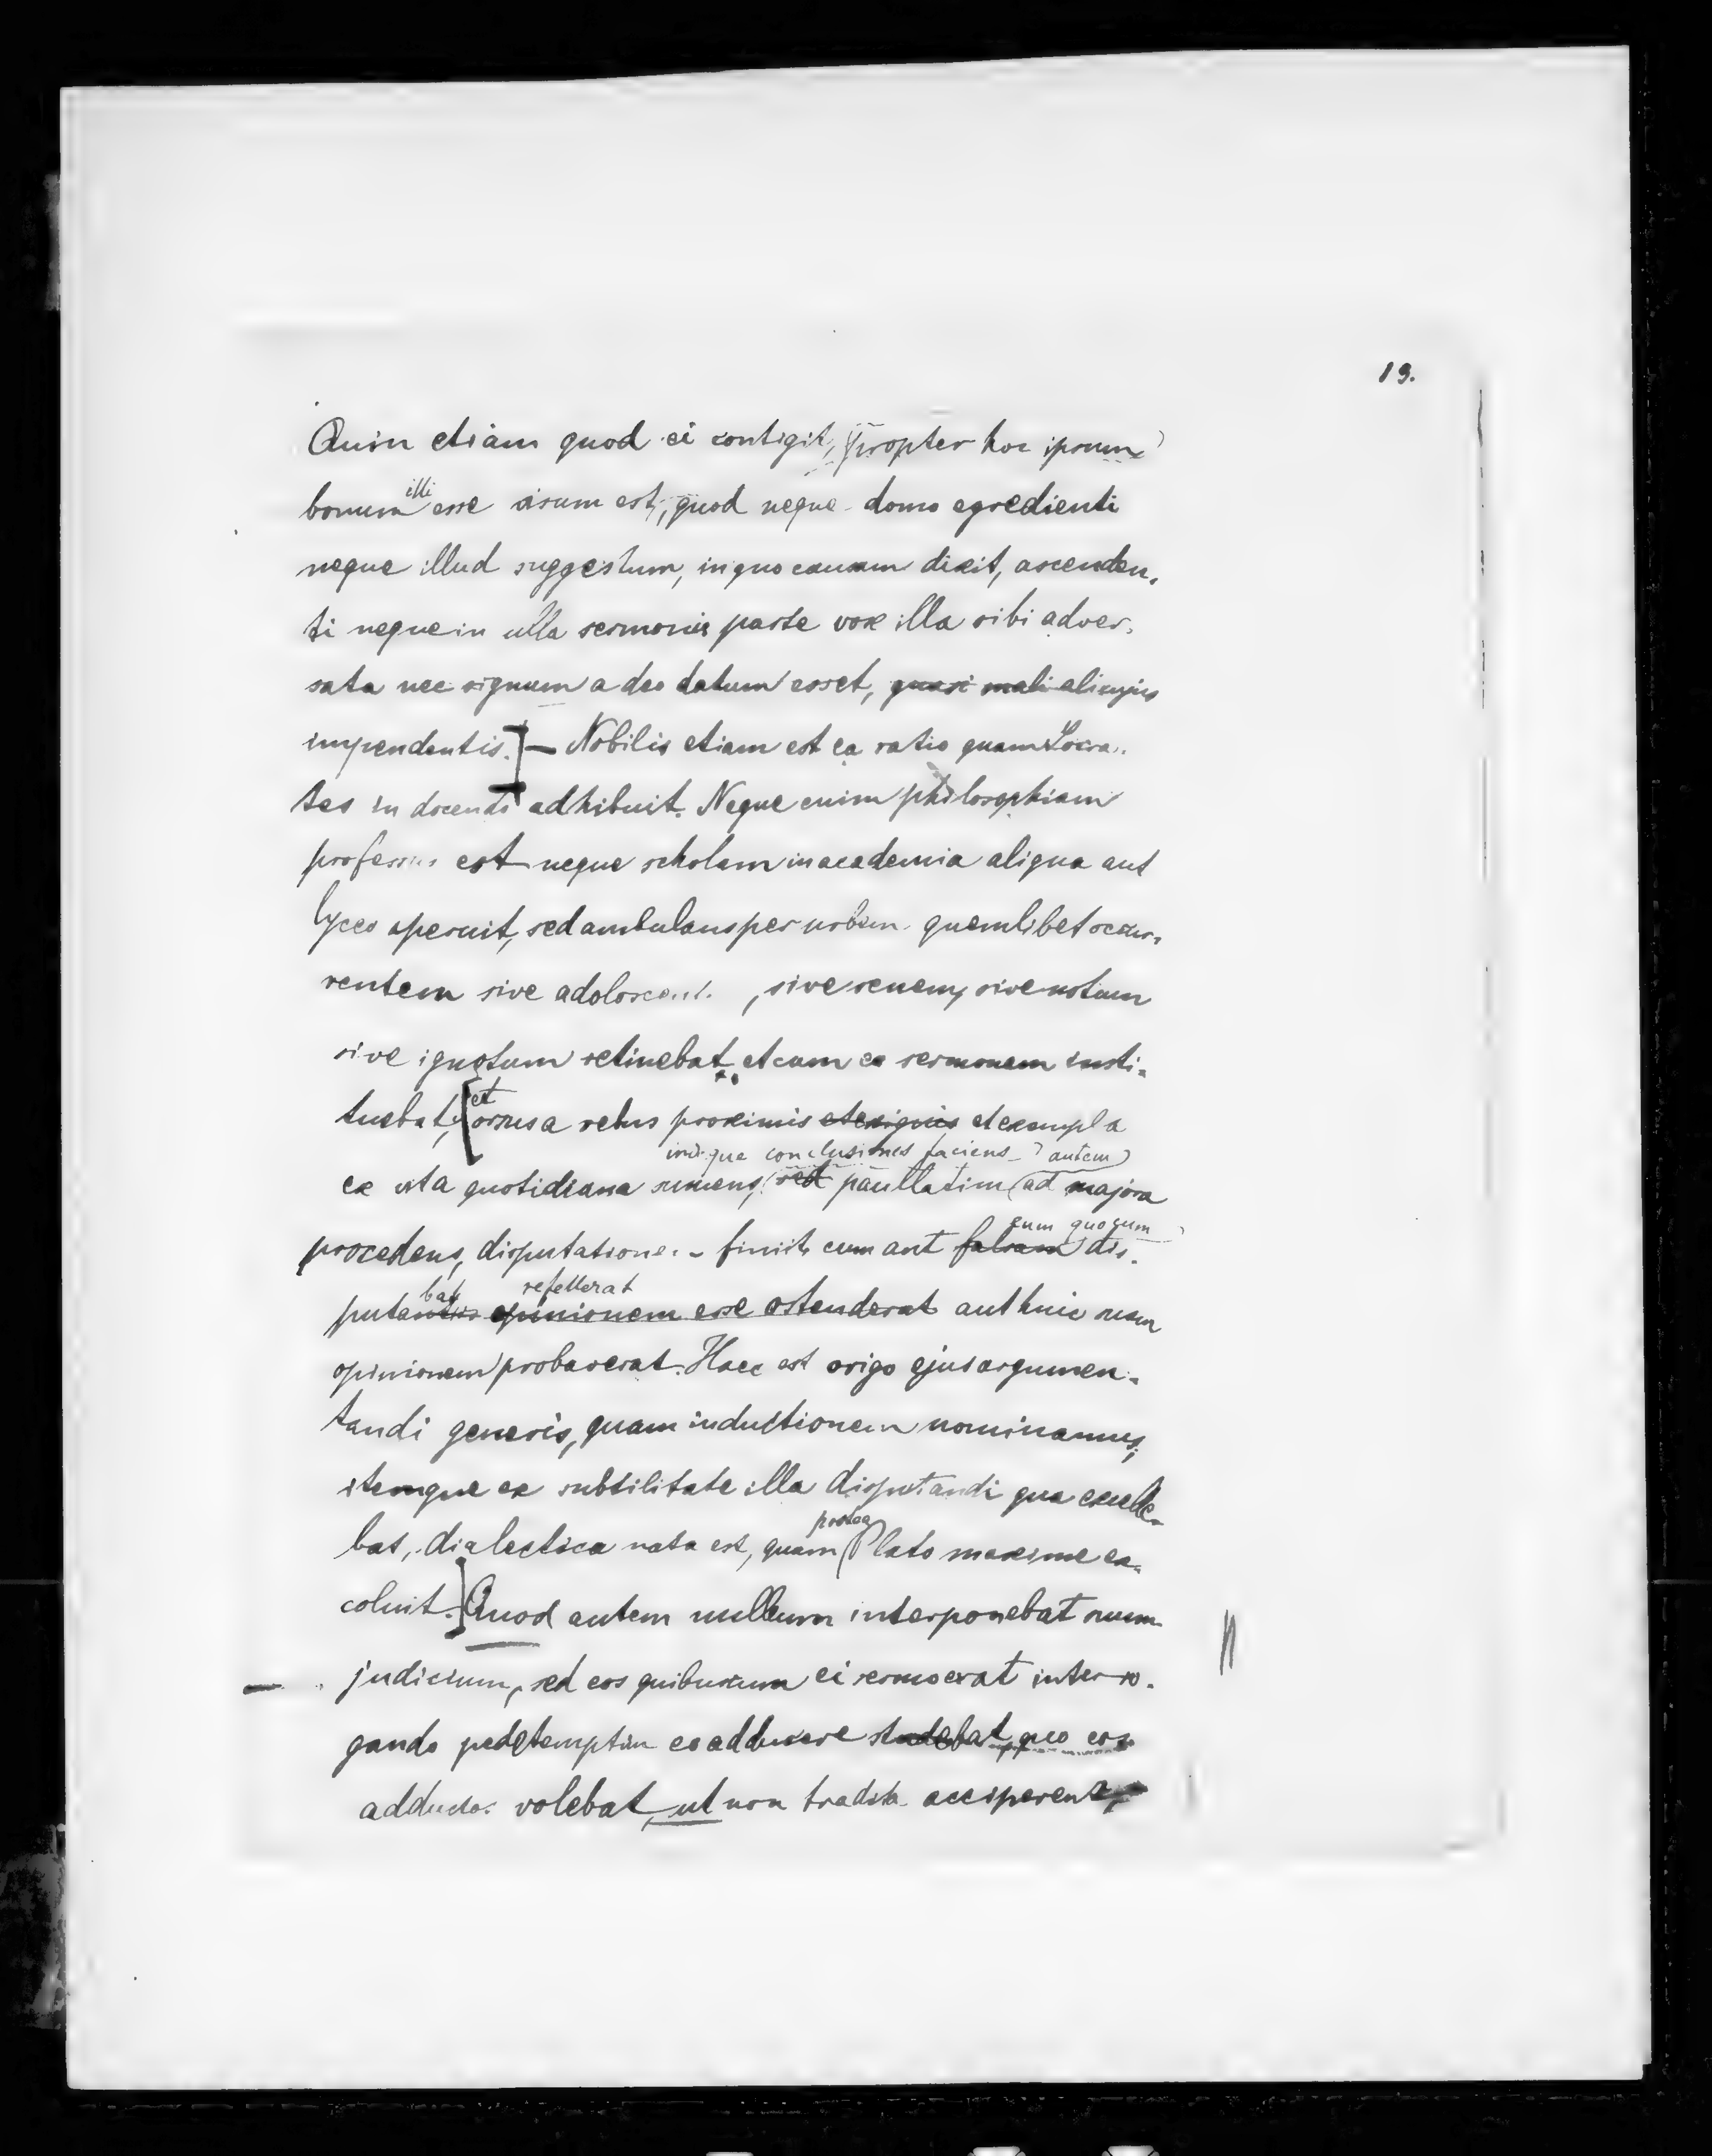 19.
Quin etiam quod ei contigit, (propter hoc ipsum)
illi
bonum esse visum est, quod neque domo egredienti
neque illud suggestum, in quo causam dixit, ascenden-
ti neque in ulla sermonis parte vox illa sibi adver-
sata nec signum a deo datum esset, quasi mali alicujus
impendentis.] — Nobilis etiam est ea ratio quam Socra-
tes in docendo adhibuit. Neque enim philosophiam
professus est neque scholam in academia aliqua aut
lyceo aperuit, sed ambulans per urbem quemlibet occur-
rentem sive adolescent , sive senem, sive notum
sive ignotum retinebat et cum eo sermonem insti-
et
tuebat, [orsus a rebus proximis et exiguis et exempla
indique conclusiones faciens autem
ex vita quotidiana sumens, sed paullatim (ad majora
eum quocum
procedens, disputatione finiit cum aut falsam dis-
bat refellerat
putantis opinionem esse ostenderat aut huic suam
opinionem probaverat. Haec est origo ejus argumen-
tandi generis, quam inductionem nominamus,
itemque ex subtilitate illa disputandi qua excelle-
postea
bat, dialectica nata est, quam (Plato maxime ex-
coluit.] Quod autem nullum interponebat suum
— judicium, sed eos quibuscum ei sermo erat interro-
gando pedetemptim eo adducere studebat, quo eos
adductos volebat, ut non tradita acciperent,